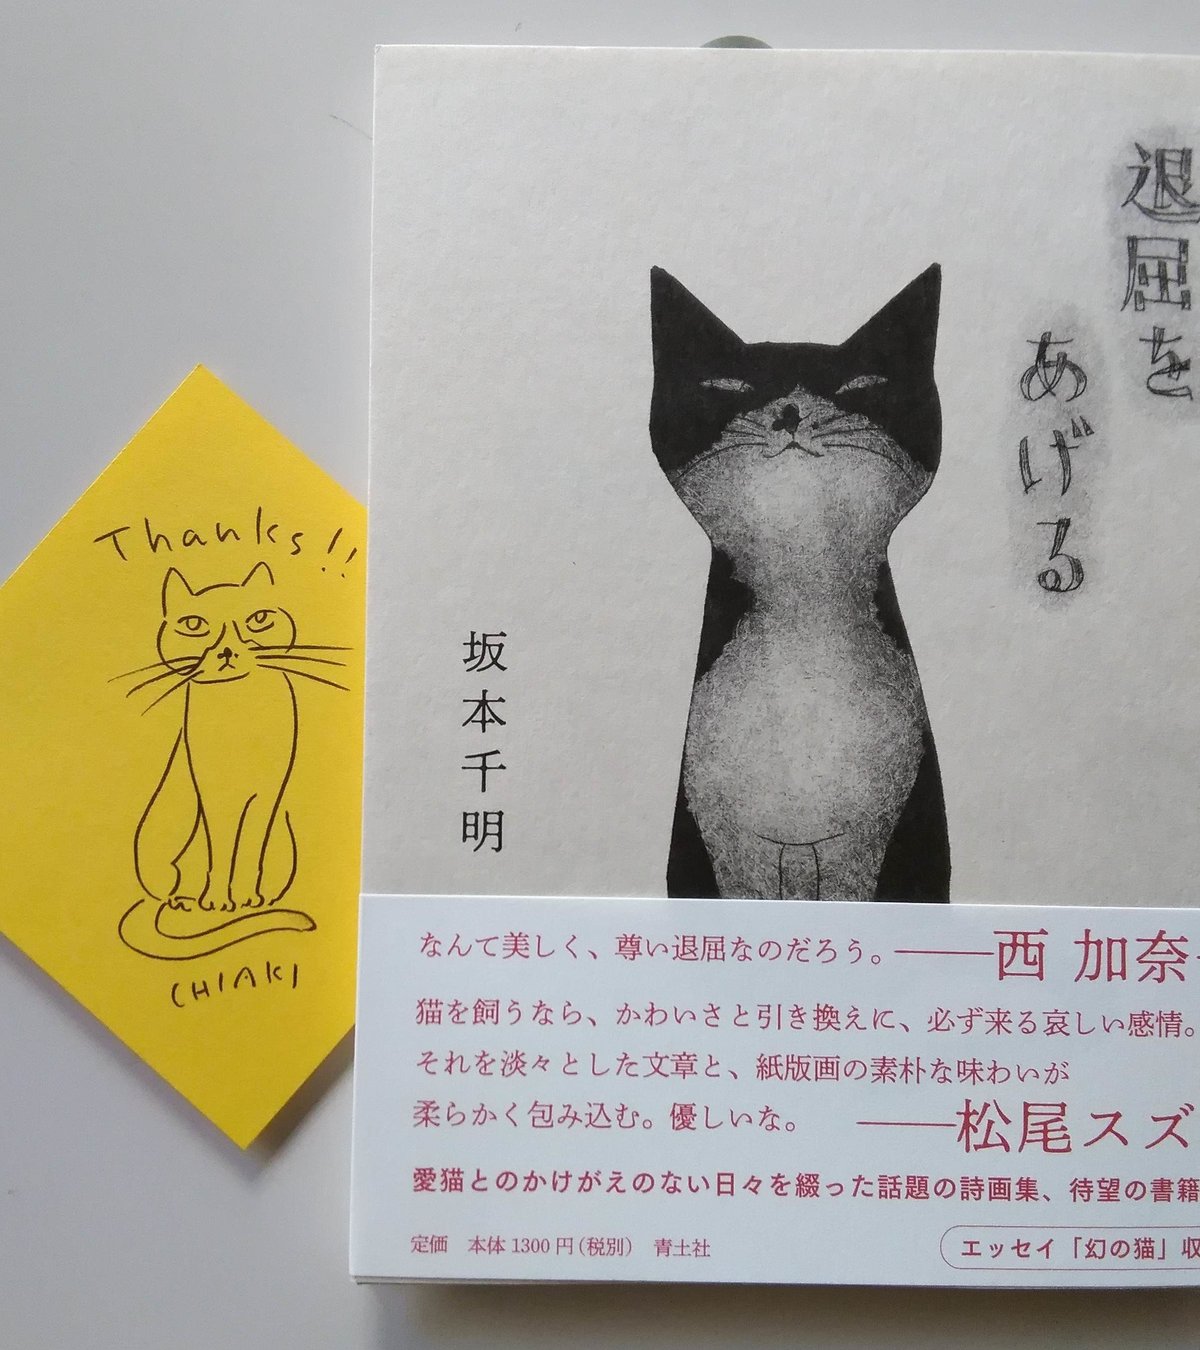 Thanks!!
CHIAKI
退屈を
あげる
坂本千明
なんて美しく、尊い退屈なのだろう。——西 加奈
猫を飼うなら、かわいさと引き換えに、必ず来る哀しい感情。
それを淡々とした文章と、紙版画の素朴な味わいが
柔らかく包み込む。優しいな。 ——松尾スズ
愛猫とのかけがえのない日々を綴った話題の詩画集、待望の書籍
定価 本体1300円(税別) 青土社
エッセイ「幻の猫」収